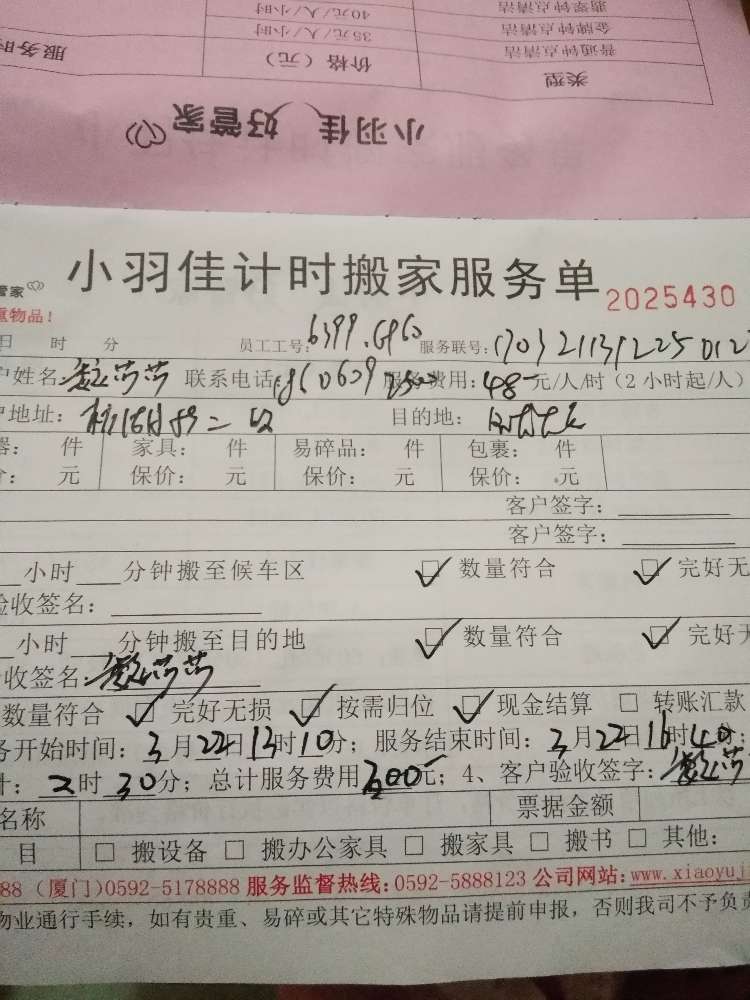 翡翠钟点清洁 40元/人/小时
金牌钟点清洁 35元/人/小时
普通钟点清洁
类型 价格（元） 服务时
小羽佳 好管家
管家
小羽佳计时搬家服务单 2025430
重物品！
日 时 分 员工工号： 服务联号：
户姓名: 莎莎 联系电话: 服务费用: 48 元/人/时（2小时起/人）
户地址: 目的地:
器: 件 家具: 件 易碎品: 件 包裹: 件
价: 元 保价: 元 保价: 元 保价: 元
客户签字:
客户签字:
小时 分钟搬至候车区 ☑ 数量符合 ☑ 完好无
验收签名:
小时 分钟搬至目的地 ☑ 数量符合 ☑ 完好无
收签名: 莎莎
数量符合 ☑ 完好无损 ☑ 按需归位 ☑ 现金结算 □ 转账汇款
务开始时间: 3月22日13时10分; 服务结束时间: 3月22日16时40分;
计: 2时30分; 总计服务费用300元; 4、客户验收签字:
名称 票据金额
目 □ 搬设备 □ 搬办公家具 □ 搬家具 □ 搬书 □ 其他:
88（厦门)0592-5178888 服务监督热线:0592-5888123 公司网站:www.xiaoyuj
物业通行手续，如有贵重、易碎或其它特殊物品请提前申报，否则我司不予负责